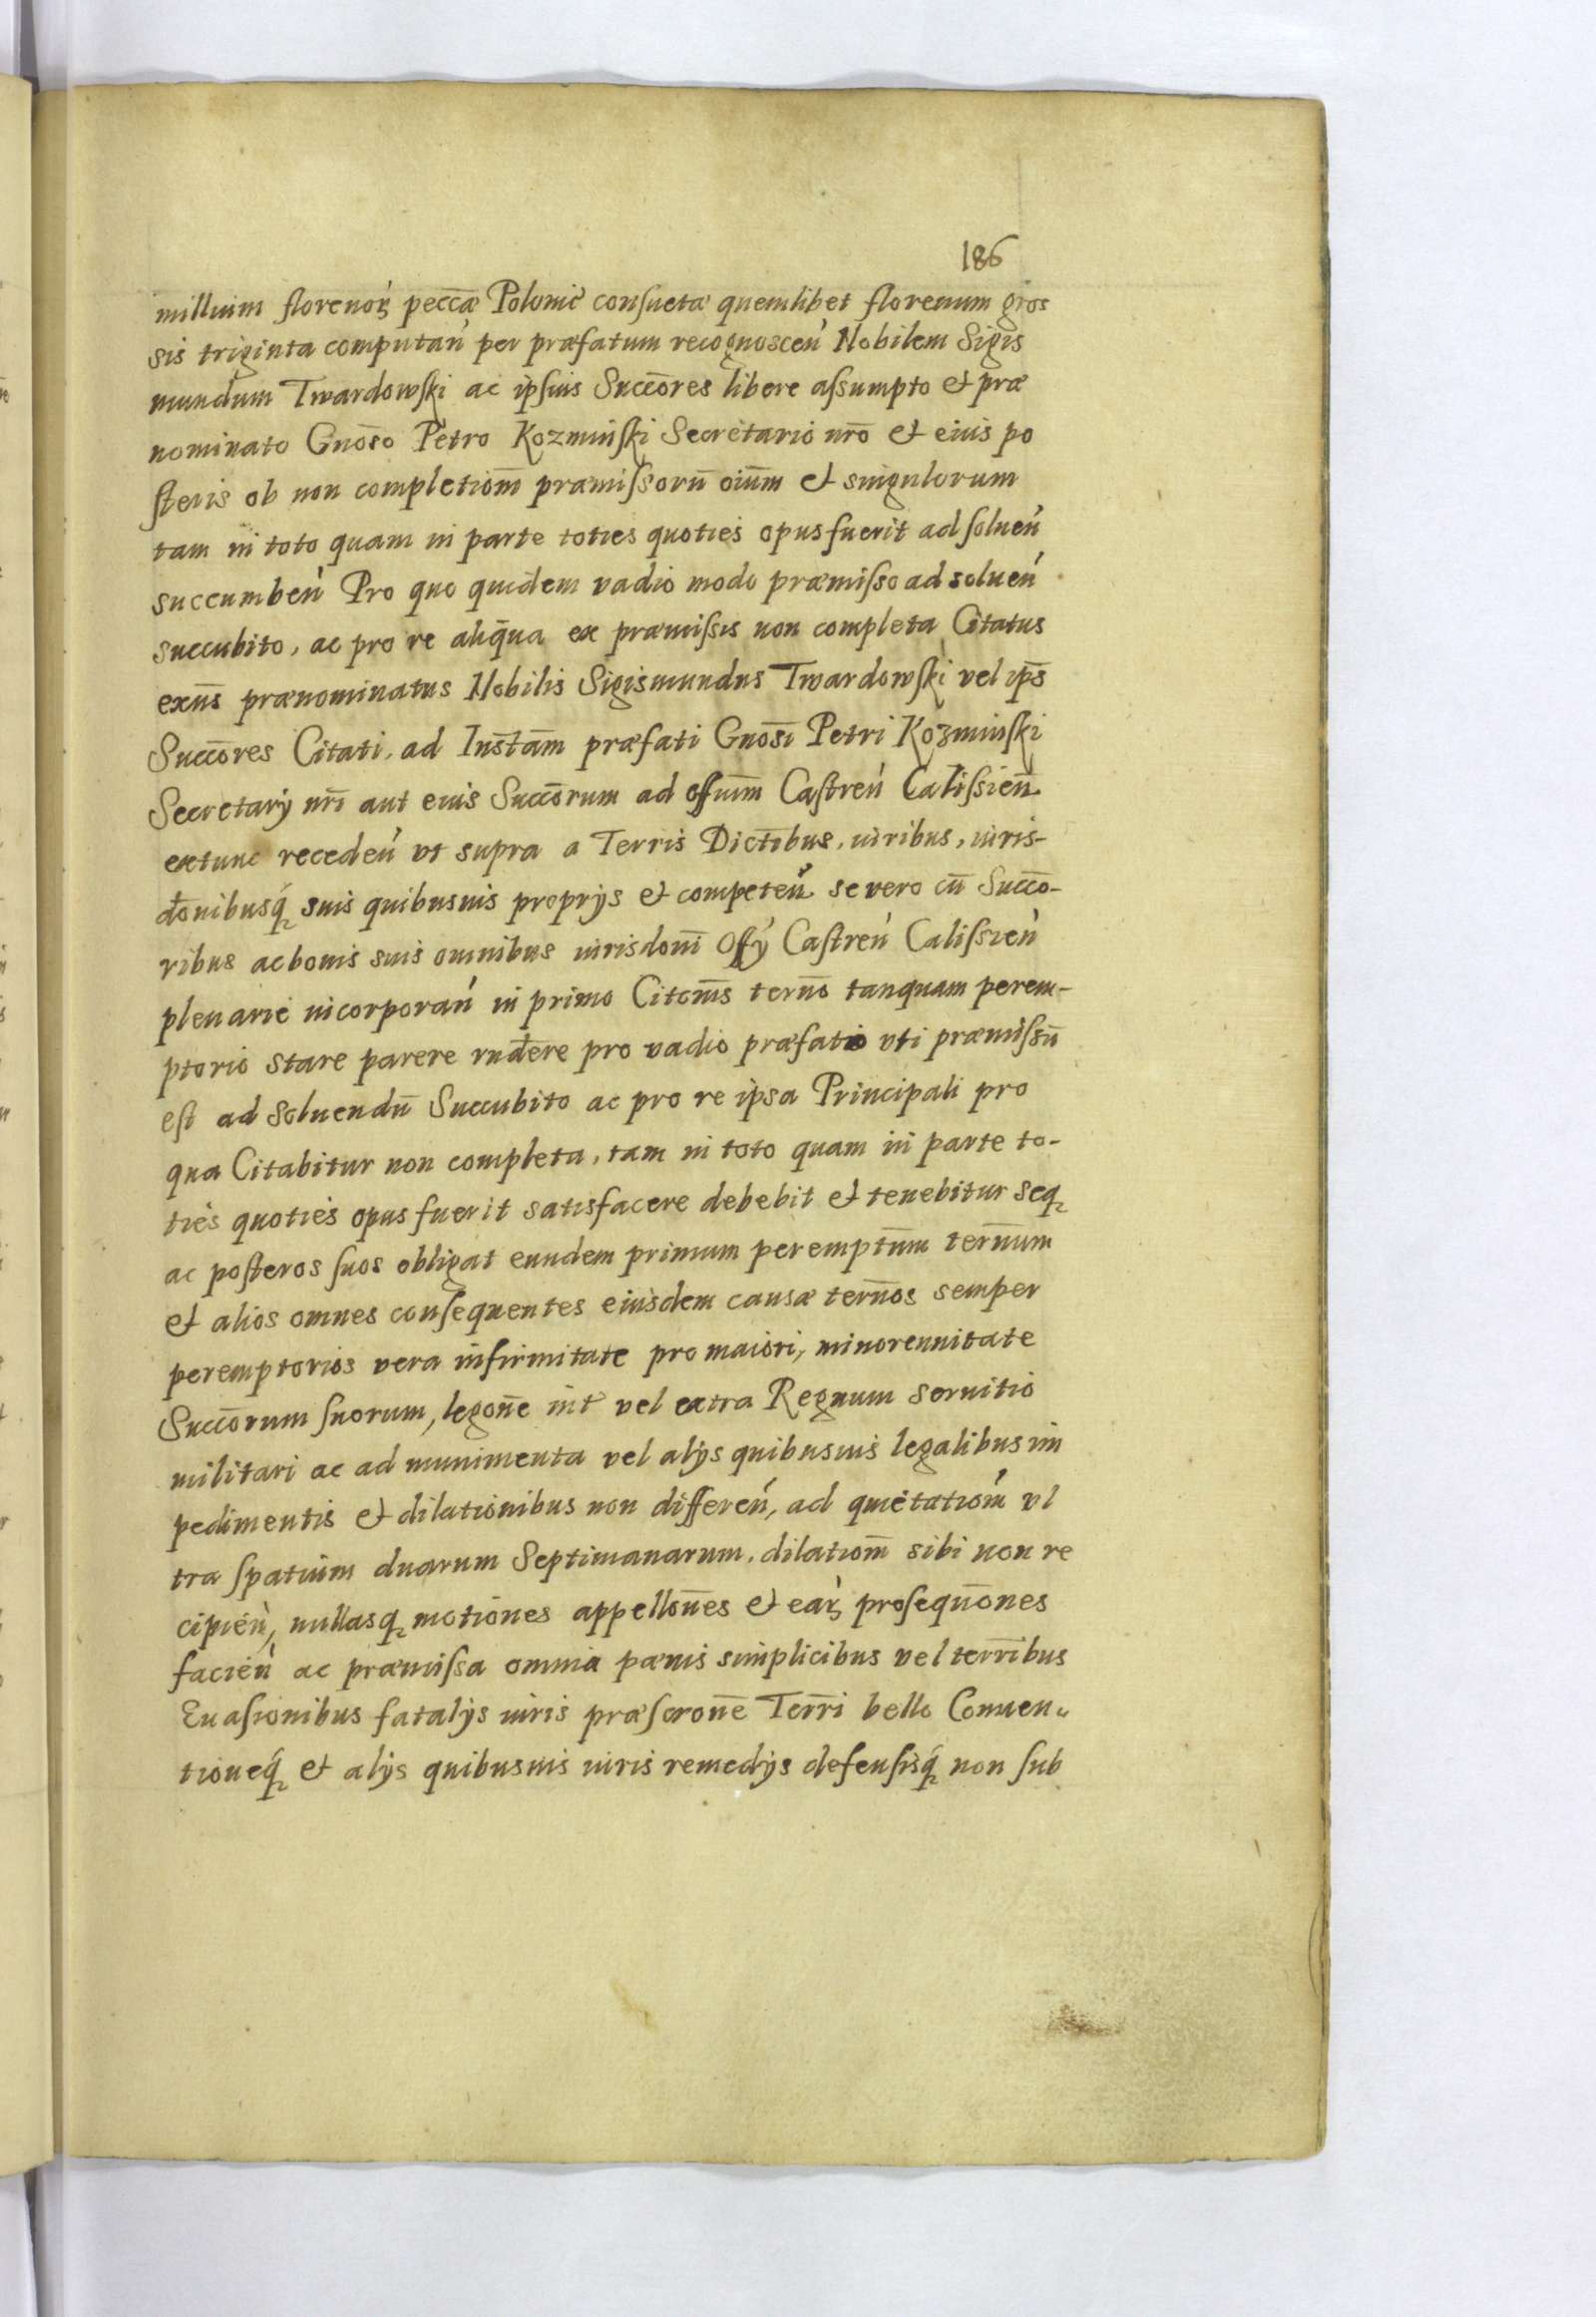 186
millium florenoꝝ pecc̄æ Polonic̄ consuetæ quemlibet florenum gros
sis triginta computan̄ per præfatum recognoscen̄ Nobilem Sigis
mundum Twardowſki ac ipſius Succ̄ores libere aſsumpto et præ
nominato Gnōso Petro Kozminſki Secretario nrō et eius po
ſteris ob non completiom̄ præmiſsorū oīum̄ et singulorum
tam in toto quam in parte toties quoties opus fuerit ad ſoluen̄
succumben̄ Pro quo quidem vadio modo præmiſso ad soluen̄
succubito, ac pro re aliq̄ua ex præmiſsis non completa Citatus
exn̄s prænominatus Nobilis Sigismundus Twardowſki vel ip̄s
Succ̄ores Citati, ad Inst̄am̄ præfati Gnōsi Petri Kozminſki
Secretarÿ nrī aut eius Succ̄orum ad offium̄ Caſtren̄ Caliſsien̄
extunc receden̄ vt supra a Terris Dictōbus, iuribus, iuris-
dōnibusq́ꝫ suis quibusuis proprÿs et competen̄ se vero cū Succō-
ribus ac bonis suis omnibus iurisdoni̅ Offÿ Caſtren̄ Caliſsien̄
plenarie incorporan̄ in primo Citōnis ternō tanquam perem-
ptorio stare parere rnd̄ere pro vadio præfatio vti præmiſsū
eſt ad Soluendū Succubito ac pro re ipsa Principali pro
qua Citabitur non completa, tam in toto quam in parte to-
ties quoties opus fuerit satisfacere debebit et tenebitur seqꝫ
ac poſteros ſuos obligat eundem primum peremptūm tern̄um
et alios omnes conſequentes eiusdem causæ tern̄os semper
peremptorios vera infirmitate pro maiori, minorennitate
Succ̄orum ſuorum, legon̄e int̄ vel extra Regnum seruitio
militari ac ad munimenta vel alÿs quibusuis legalibus im
pedimentis et dilationibus non differen̄, ad quietatiom̄ vl
tra ſpatium duarum Septimanarum, dilatiom̄ sibi non re
cipien̄, nullasqꝫ motiones appellon̄es et eaꝝ proſequōnes
facien̄ ac præmiſsa omnia pænis simplicibus vel terrībus
Euaſionibus fatalÿs iuris præſcrone̅ Terr̄i bello Conuen-
tioneq́ꝫ et alÿs quibusuis iuris remedÿs defenſisq́ꝫ non ſub